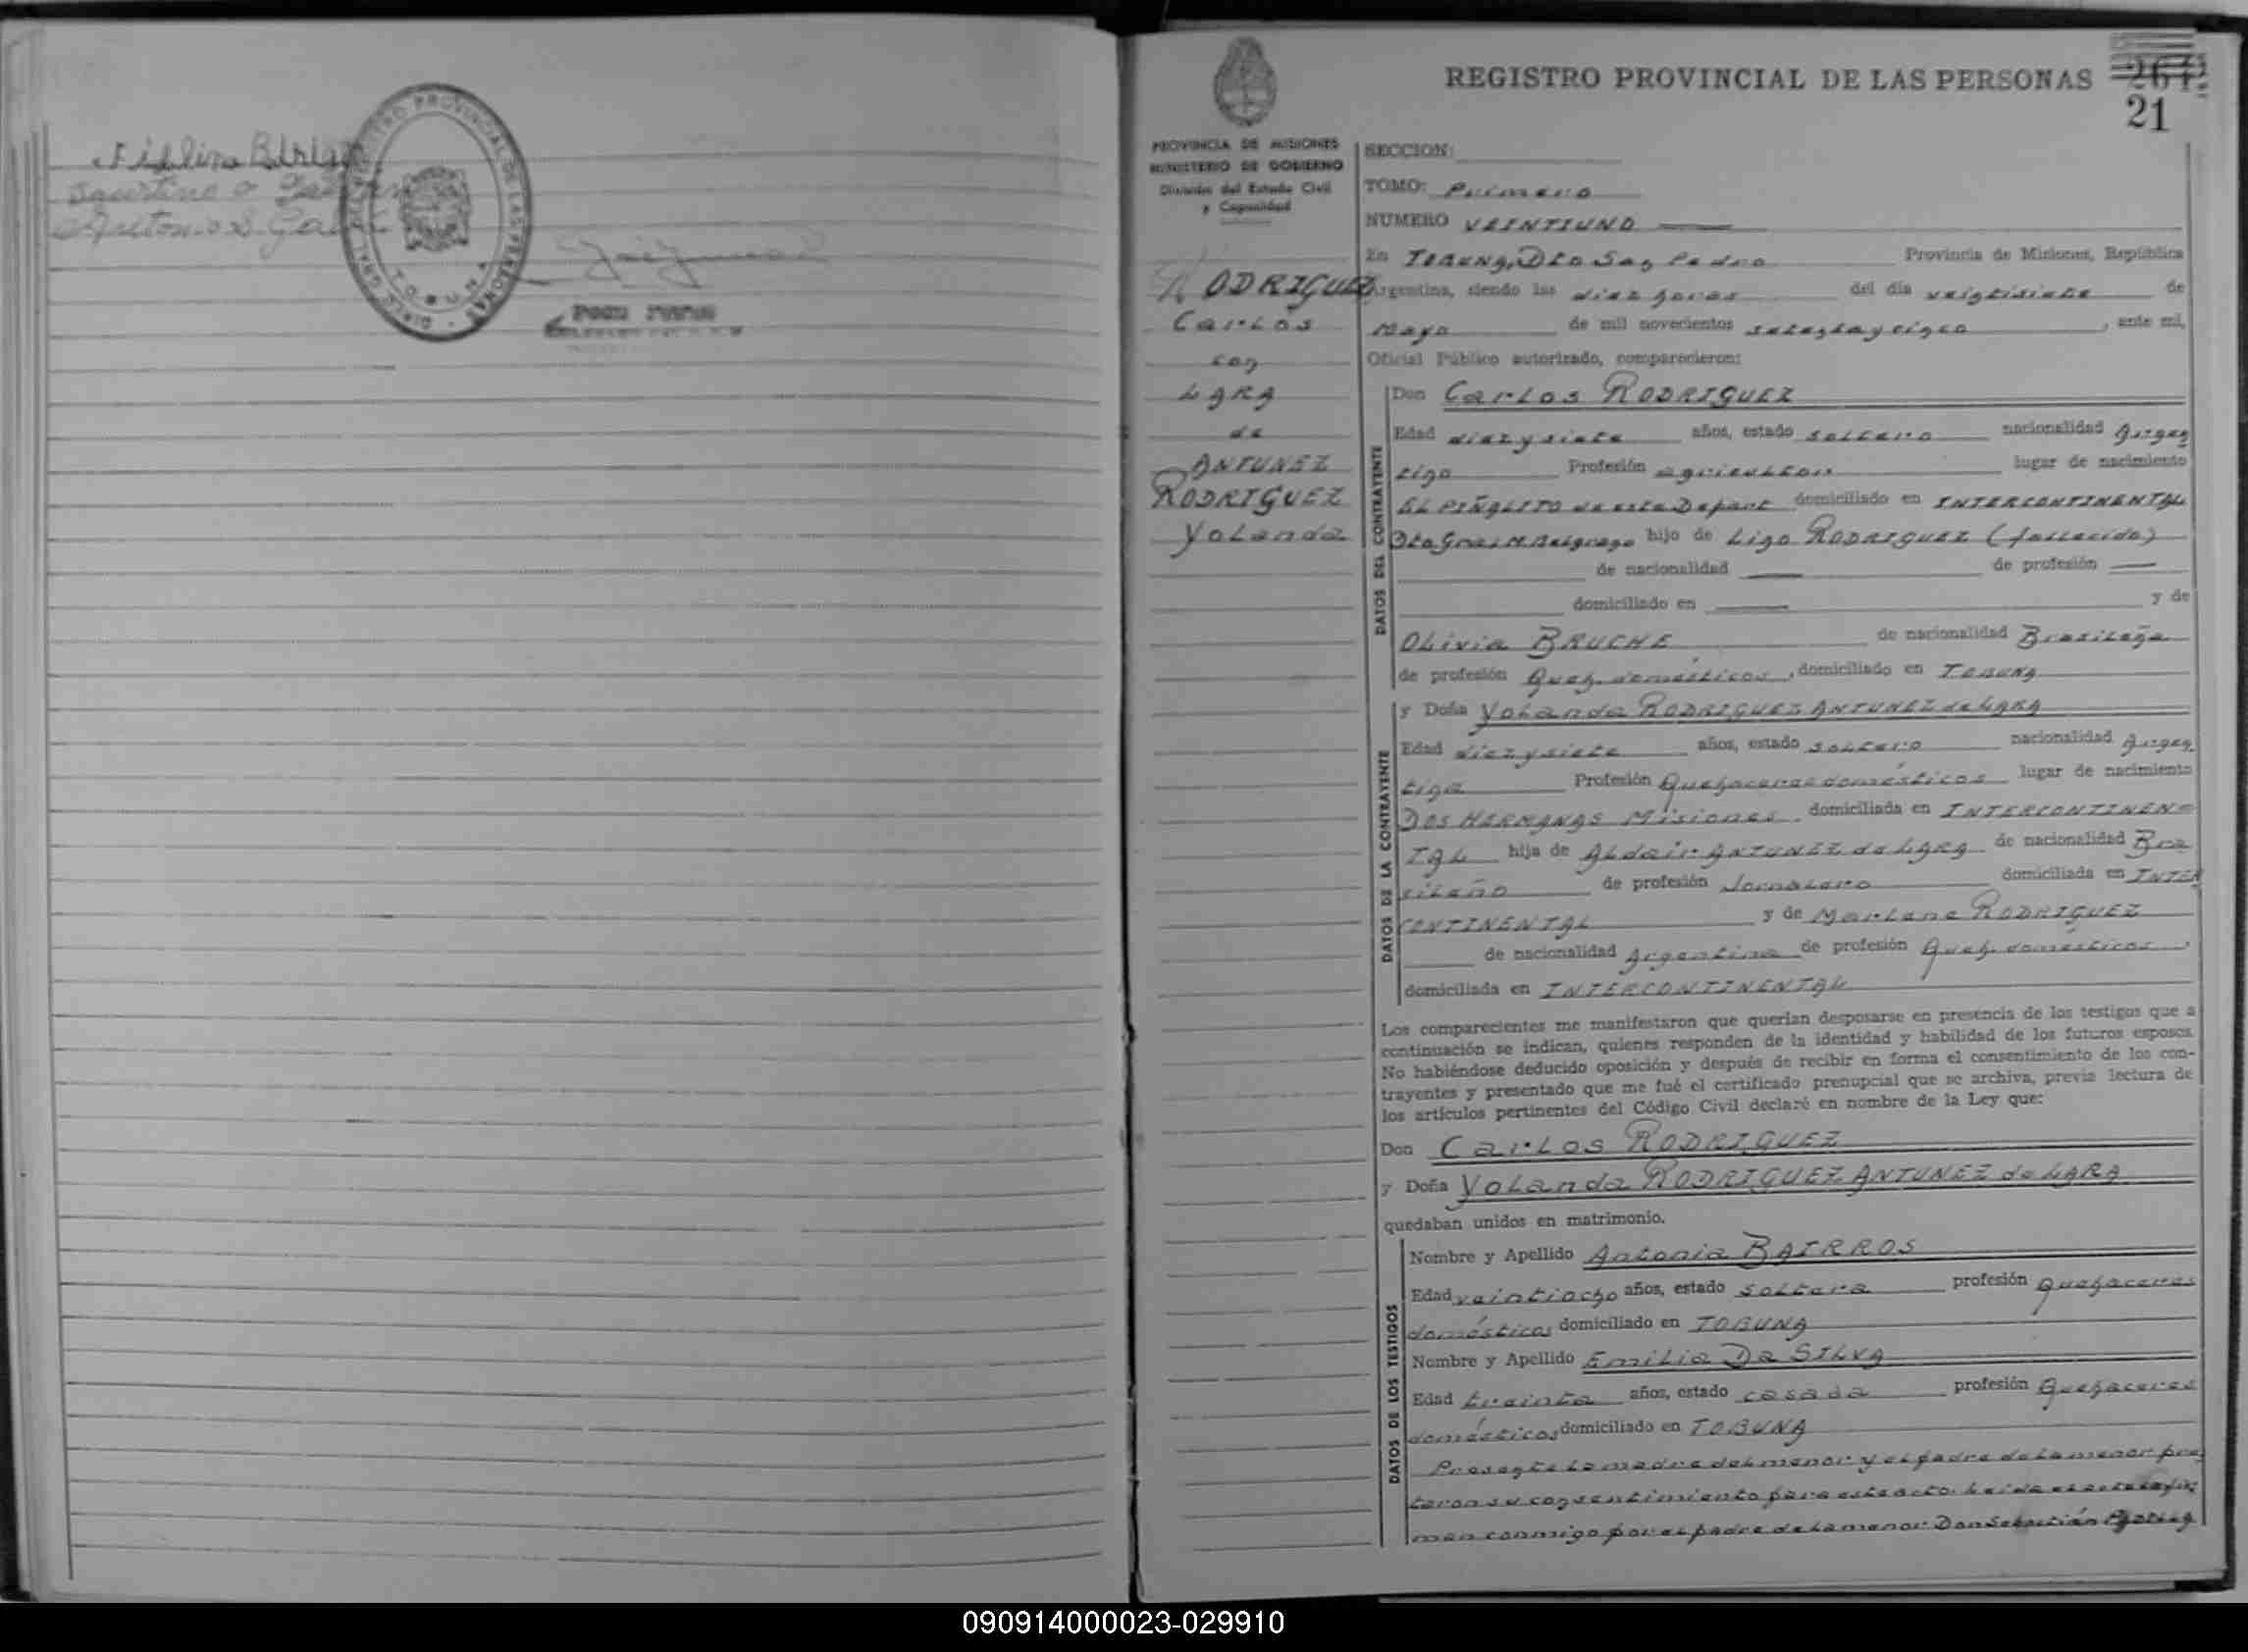 Antonio S.
REGISTRO PROVINCIAL DE LAS PERSONAS
TOBUNA
264
21
PROVINCIA DE MISIONES
MINISTERIO DE GOBIERNO
División del Estado Civil
y Capacidad
RODRIGUEZ
Carlos
con
LARA
de
ANTUNEZ
RODRIGUEZ
Yolanda
REGISTRO PROVINCIAL DE LAS PERSONAS
SECCION:
TOMO: Primero
NUMERO VEINTIUNO
En TOBUNA, Dto San Pedro Provincia de Misiones, República
Argentina, siendo las diez horas del día veintisiete de
Mayo de mil novecientos setenta y cinco, ante mi,
Oficial Público autorizado, comparecieron:
DATOS DEL CONTRAYENTE
Don Carlos RODRIGUEZ
Edad diez y siete años, estado soltero nacionalidad Argen
tino Profesión agricultor lugar de nacimiento
EL PIÑALITO de este Depart domiciliado en INTERCONTINENTAL
Dto Gral M. Belgrano hijo de Lino RODRIGUEZ (fallecido)
de nacionalidad de profesión
domiciliado en y de
Olivia BRUCHE de nacionalidad Brasileña
de profesión Queh. domésticos, domiciliado en TOBUNA
DATOS DE LA CONTRAYENTE
y Doña Yolanda RODRIGUEZ ANTUNEZ de LARA
Edad diez y siete años, estado soltero nacionalidad Argen
tina Profesión Quehaceres domésticos lugar de nacimiento
DOS HERMANAS Misiones domiciliada en INTERCONTINEN=
TAL hija de Aldair ANTUNEZ de LARA de nacionalidad Bra
sileño de profesión Jornalero domiciliada en INTER
CONTINENTAL y de Marlene RODRIGUEZ
de nacionalidad Argentina de profesión Queh. domesticos,
domiciliada en INTERCONTINENTAL
Los comparecientes me manifestaron que querían desposarse en presencia de los testigos que a
continuación se indican, quienes responden de la identidad y habilidad de los futuros esposos.
No habiéndose deducido oposición y después de recibir en forma el consentimiento de los con-
trayentes y presentado que me fué el certificado prenupcial que se archiva, previa lectura de
los artículos pertinentes del Código Civil declaré en nombre de la Ley que:
Don Carlos RODRIGUEZ
y Doña Yolanda RODRIGUEZ ANTUNEZ de LARA
quedaban unidos en matrimonio.
DATOS DE LOS TESTIGOS
Nombre y Apellido Antonia BAIRROS
Edad veintiocho años, estado soltera profesión Quehaceres
domésticos domiciliado en TOBUNA
Nombre y Apellido Emilia Da SILVA
Edad treinta años, estado casada profesión Quehaceres
domésticos domiciliado en TOBUNA
Presente la madre del menor y el padre de la menor pres
taron su consentimiento para este acto. Leida el acta la fir
man conmigo por el padre de la menor Don Sebastián
090914000023-029910